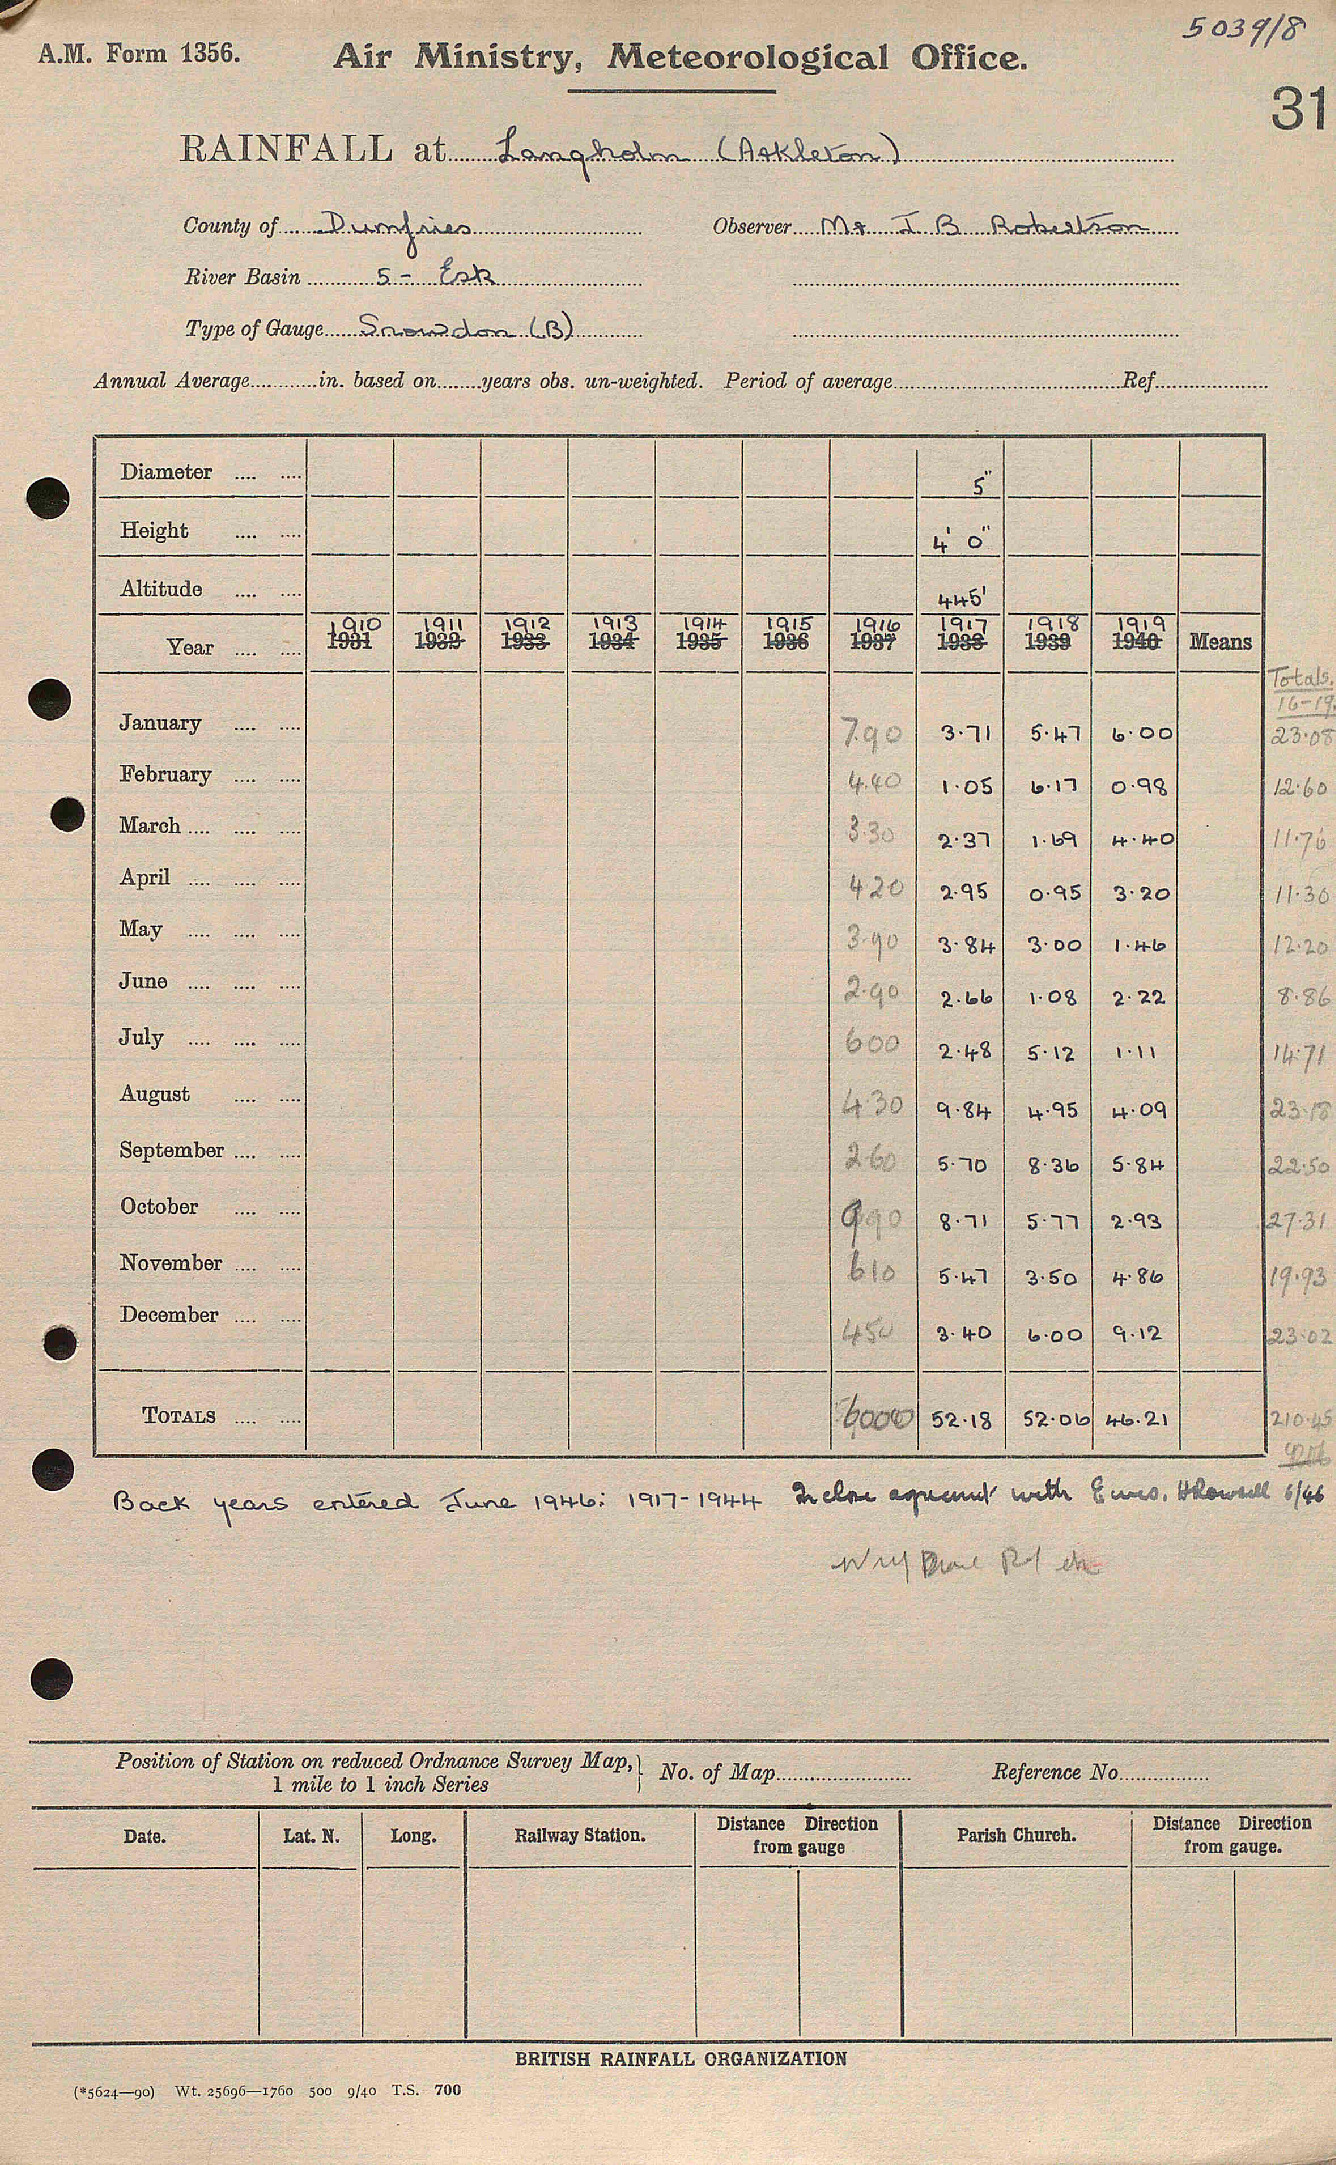 5039/8
A.M. Form 1356.
Air Ministry, Meteorological Office.
31
RAINFALL at Langholm (Arkleton)
County of Dumfries Observer Mr J B Robertson
River Basin 5 - Esk
Type of Gauge Snowdon (B)
Annual Average in. based on years obs. un-weighted. Period of average Ref.
Diameter 5"
Height 4' 0"
Altitude 445'
1910 1911 1912 1913 1914 1915 1916 1917 1918 1919
Year 1931 1932 1933 1934 1935 1936 1937 1938 1939 1940 Means
Totals.
16-19.
January 7.90 3.71 5.47 6.00 23.08
February 4.40 1.05 6.17 0.98 12.60
March 3.30 2.37 1.69 4.40 11.76
April 4.20 2.95 0.95 3.20 11.30
May 3.90 3.84 3.00 1.46 12.20
June 2.90 2.66 1.08 2.22 8.86
July 6 00 2.48 5.12 1.11 14.71
August 4.30 9.84 4.95 4.09 23.18
September 2.60 5.70 8.36 5.84 22.50
October 9 90 8.71 5.77 2.93 27.31
November 6 10 5.47 3.50 4.86 19.93
December 4 50 3.40 6.00 9.12 23.02
TOTALS 6000 52.18 52.06 46.21 210.45
Back years entered June 1946: 1917-1944 In close agreement with Ewes. 6/46
Position of Station on reduced Ordnance Survey Map, No. of Map Reference No.
1 mile to 1 inch Series
Date. Lat. N. Long. Railway Station. Distance Direction from gauge Parish Church. Distance Direction from gauge.
BRITISH RAINFALL ORGANIZATION
(*5624—90) Wt. 25696—1760 500 9/40 T.S. 700